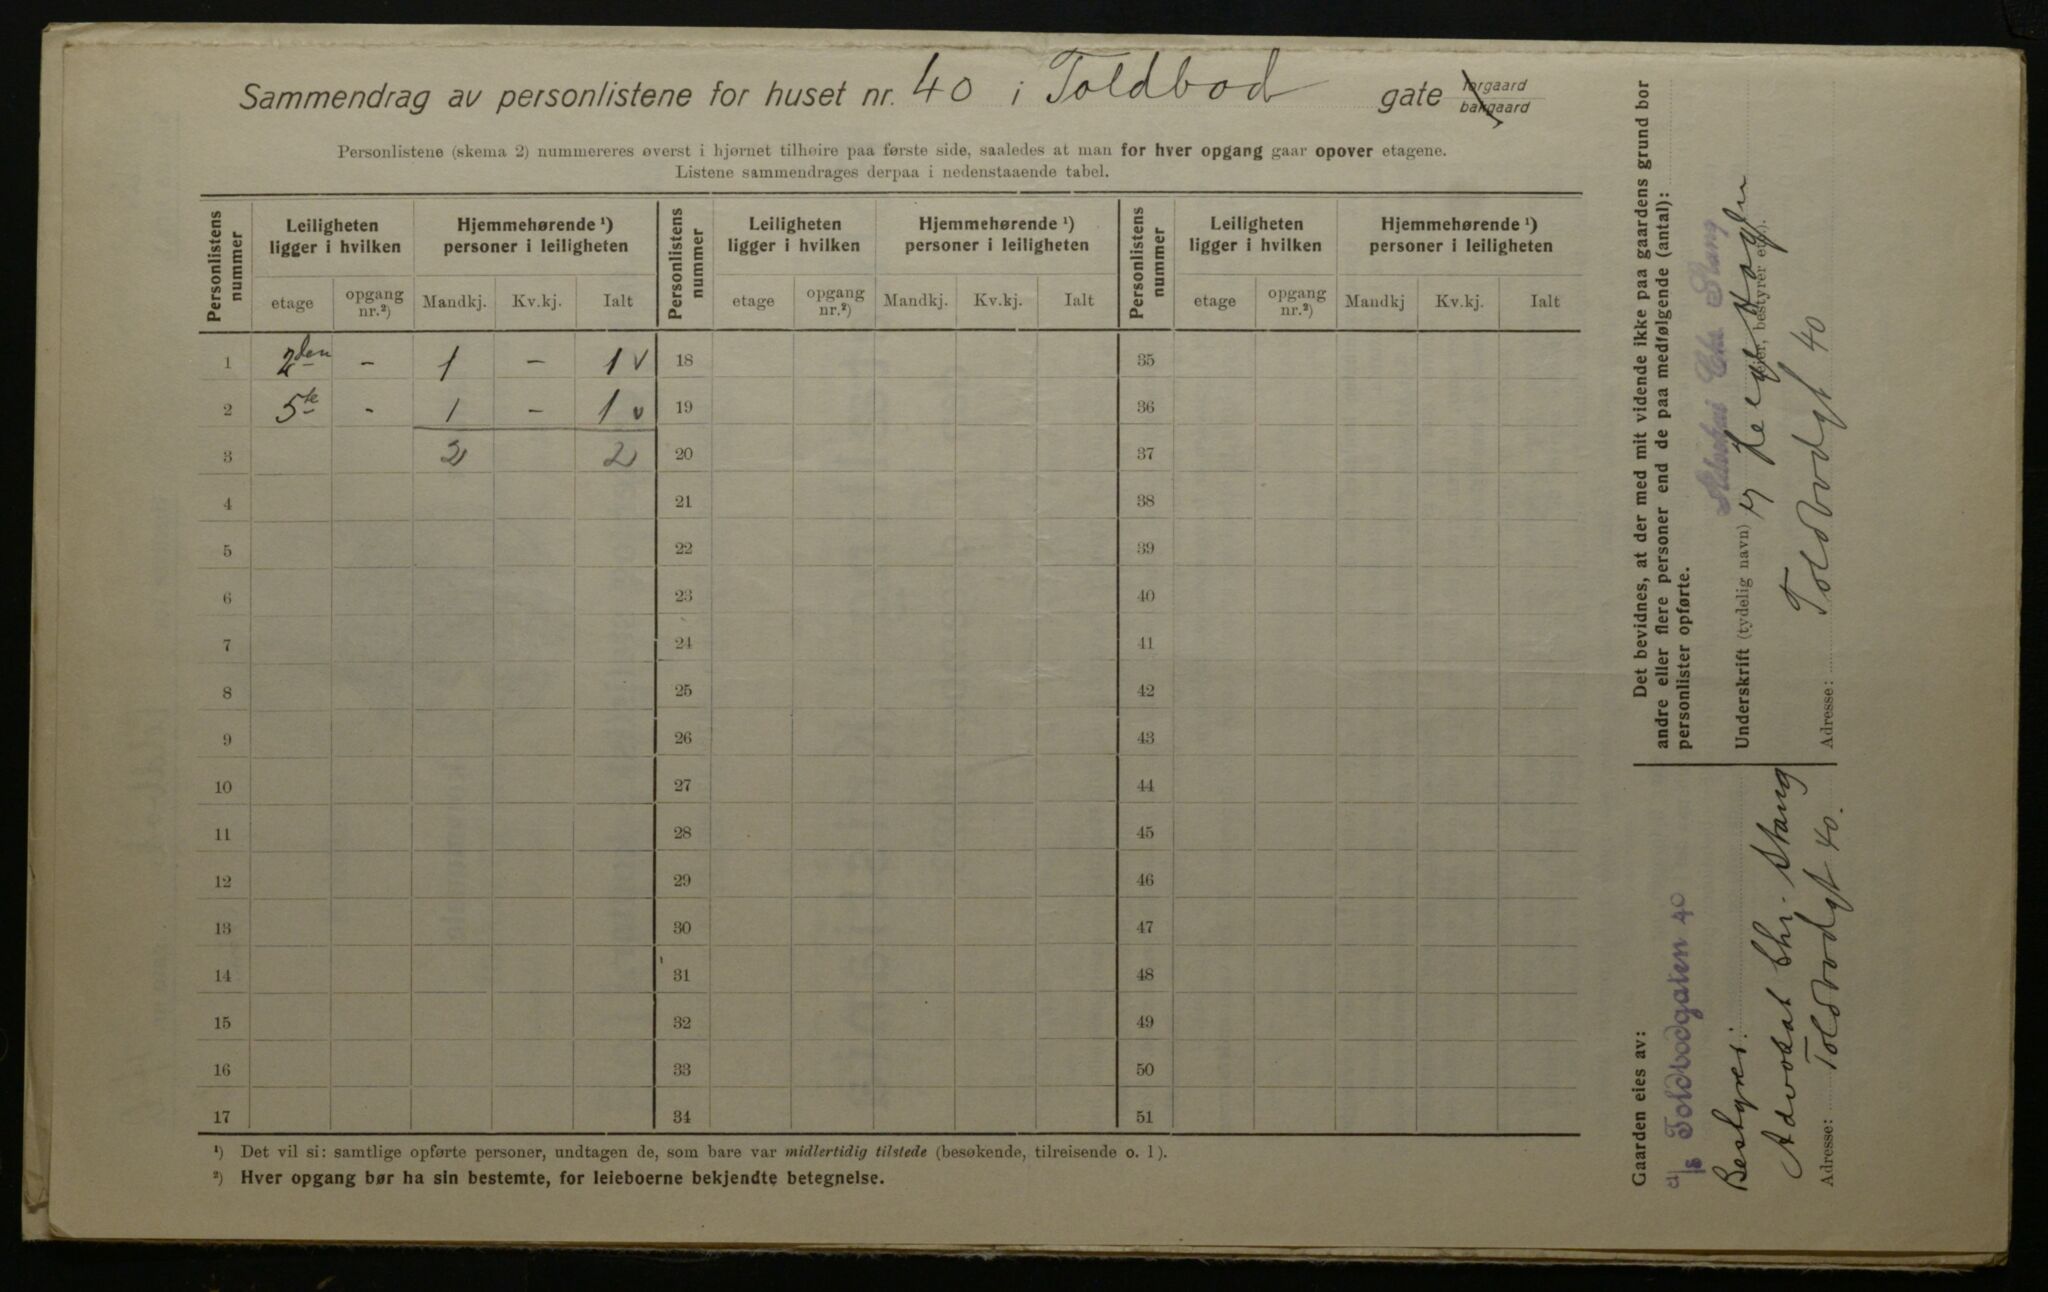 Sammendrag av personlistene for huset nr. 40 i Toldbod gate forgaard bakgaard
Personlistene (skema 2) nummereres øverst i hjørnet tilhøire paa første side, saaledes at man for hver opgang gaar opover etagene.
Listene sammendrages derpaa i nedenstaaende tabel.
Personlistens nummer | Leiligheten ligger i hvilken | Hjemmehørende ¹) personer i leiligheten | Personlistens nummer | Leiligheten ligger i hvilken | Hjemmehørende ¹) personer i leiligheten | Personlistens nummer | Leiligheten ligger i hvilken | Hjemmehørende ¹) personer i leiligheten
etage | opgang nr.²) | Mandkj. | Kv.kj. | Ialt | etage | opgang nr.²) | Mandkj. | Kv.kj. | Ialt | etage | opgang nr.²) | Mandkj | Kv.kj. | Ialt
1 2den - 1 - 1 v 18 35
2 5te - 1 - 1 v 19 36
3 2 2 20 37
4 21 38
5 22 39
6 23 40
7 24 41
8 25 42
9 26 43
10 27 44
11 28 45
12 29 46
13 30 47
14 31 48
15 32 49
16 33 50
17 34 51
¹) Det vil si: samtlige opførte personer, undtagen de, som bare var midlertidig tilstede (besøkende, tilreisende o. l).
²) Hver opgang bør ha sin bestemte, for leieboerne bekjendte betegnelse.
Det bevidnes, at der med mit vidende ikke paa gaardens grund bor
andre eller flere personer end de paa medfølgende (antal):
personlister opførte.
Chr. Stang
Underskrift (tydelig navn)
(eier, bestyrer etc.).
Toldbodgt 40
Adresse:
Gaarden eies av:
A/s Toldbodgaten 40
Bestyrer:
Advokat Chr. Stang
Toldbodgt 40.
Adresse: